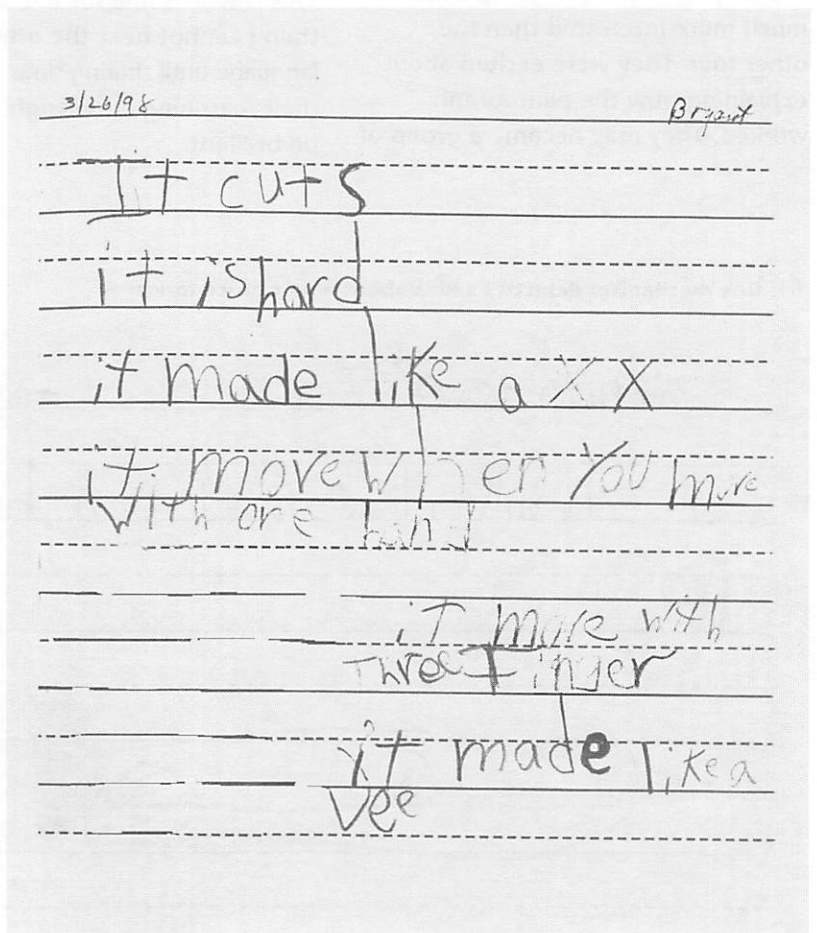 3/26/98 Bryant
It cuts
it is hard
it made like a X X
it move when You move
with one hand
it move with
Three finger
it made like a
Vee